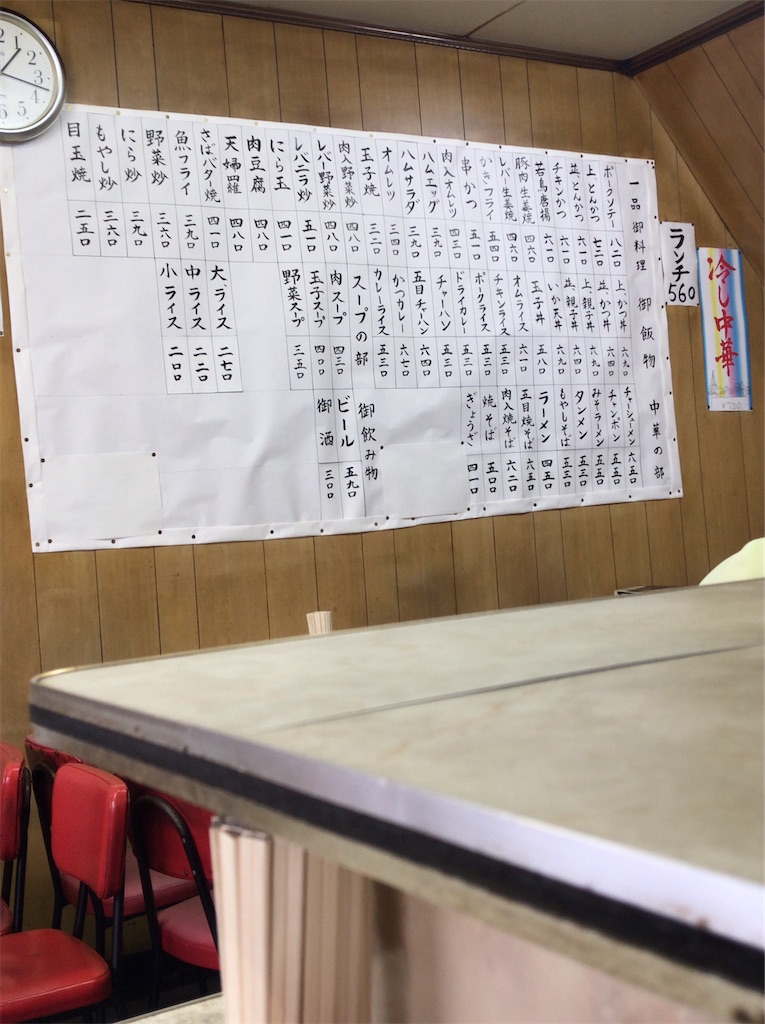 一品御料理
ポークソテー 八二〇
上とんかつ 七三〇
並とんかつ 六一〇
チキンかつ 六一〇
若鳥唐揚 六一〇
豚肉生姜焼 四六〇
レバー生姜焼 四六〇
かきフライ 五四〇
串かつ 五一〇
肉入オムレツ 四三〇
ハムエッグ 三九〇
ハムサラダ 三九〇
オムレツ 三四〇
玉子焼 三二〇
肉入野菜炒 四八〇
レバー野菜炒 四八〇
レバニラ炒 五一〇
にら玉 四一〇
肉豆腐 四八〇
天婦羅 四八〇
さばバター焼 四一〇
魚フライ 三九〇
野菜炒 三六〇
にら炒 三九〇
もやし炒 三六〇
目玉焼 二五〇
御飯物
上かつ丼 六九〇
並かつ丼 六四〇
上親子丼 六九〇
並親子丼 六四〇
いか天丼 六九〇
玉子丼 五八〇
オムライス 六一〇
チキンライス 五三〇
ポークライス 五三〇
ドライカレー 五三〇
チャーハン 五三〇
五目チャハン 六四〇
かつカレー 六七〇
カレーライス 五三〇
スープの部
肉スープ 四三〇
玉子スープ 四〇〇
野菜スープ 三五〇
大ライス 二七〇
中ライス 二二〇
小ライス 二〇〇
中華の部
チャーシューメン 六五〇
チャンポン 五五〇
みそラーメン 五五〇
タンメン 五五〇
もやしそば 五三〇
ラーメン 四五〇
五目焼そば 六五〇
肉入焼そば 六二〇
焼そば 五〇〇
ぎょうざ 四一〇
御飲み物
ビール 五九〇
御酒 三〇〇
ランチ
560
冷し中華
¥730